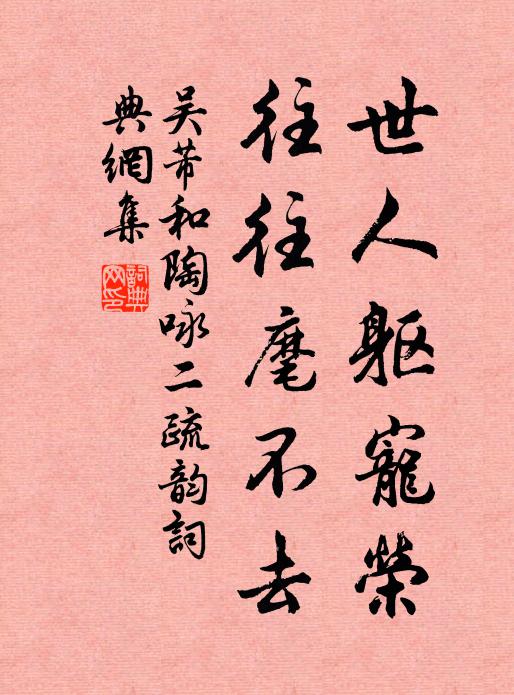 世人軀寵榮
往往麾不去
吴芾和陶咏二疏韵詞
典網集
詞典
网印